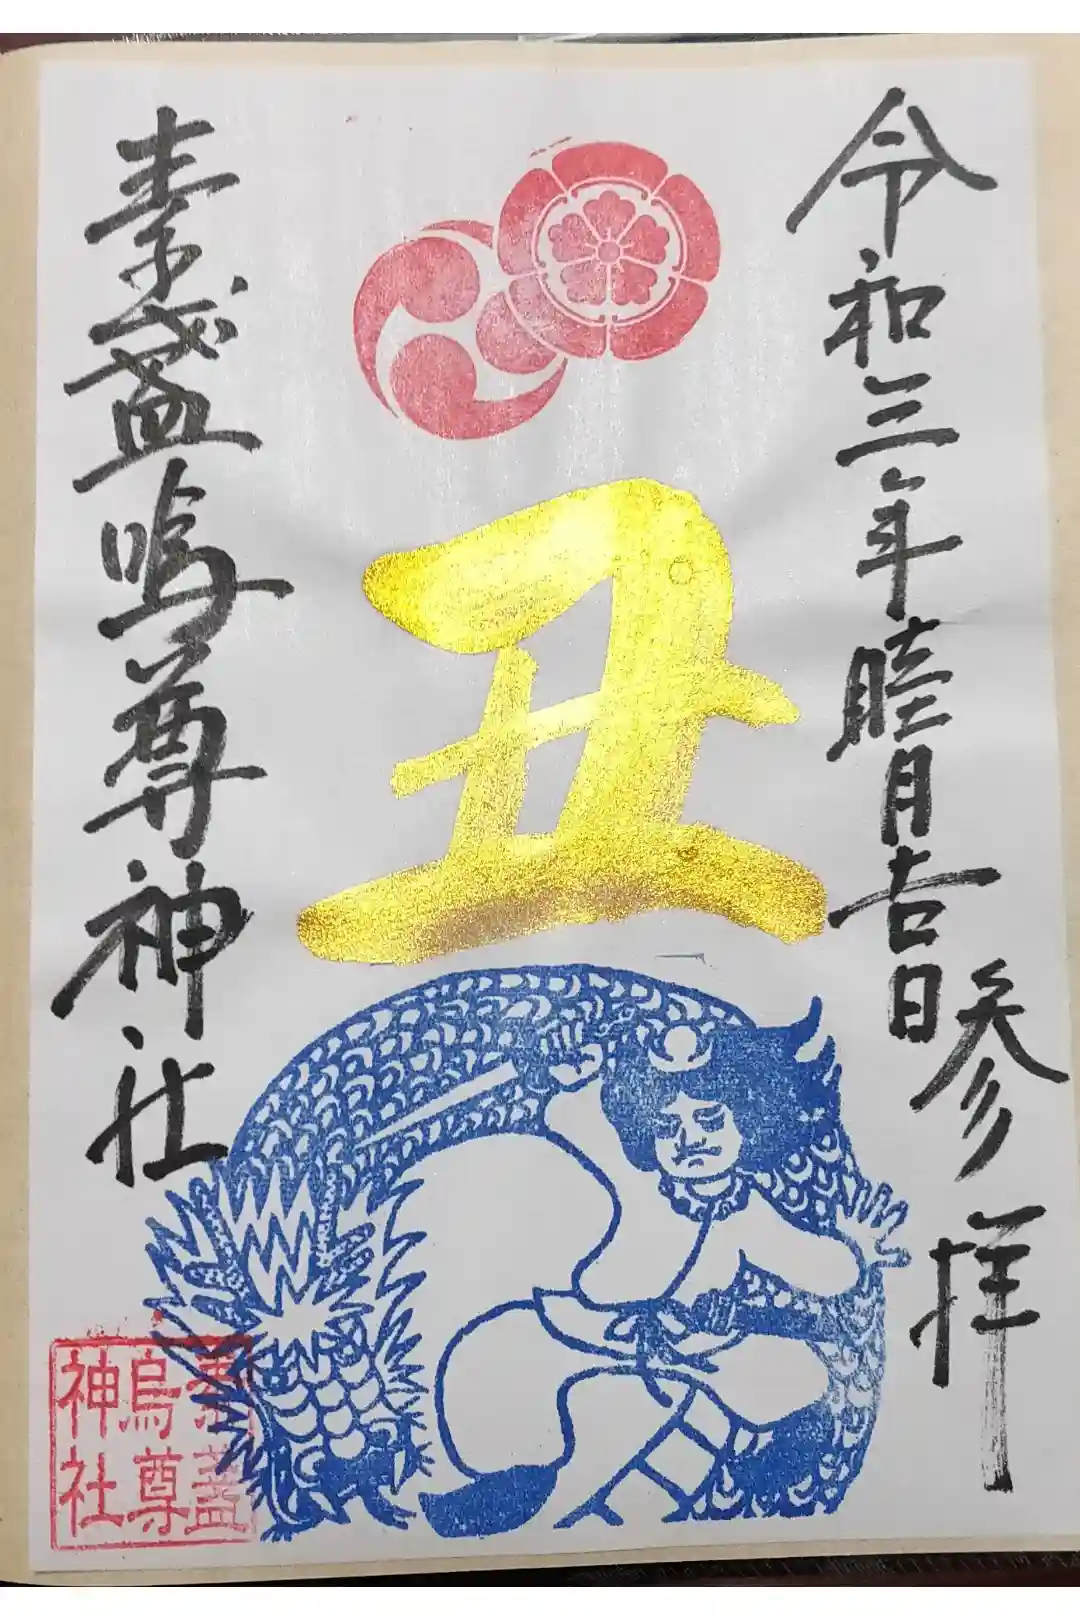 令和三年睦月吉日参拝
丑
素盞嗚尊神社
素盞
烏尊
神社